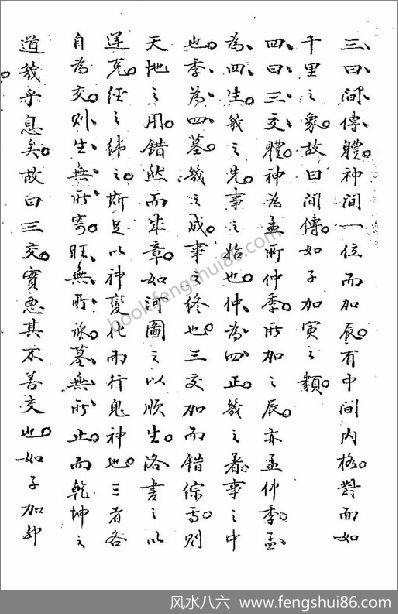 三曰间傳體神间一位而加辰有中间内格對而如
千里之象故曰间傳如子加寅之類
四曰三交體神為孟所仲季所加之辰亦孟仲季孟
為四生幾之先事之始也仲為四正幾之著事之中
也季為四墓幾之成事之終也三交加而錯綜焉則
天地之用錯然而成章如河圖之以順生洛書之以
逆克经之緯之斯足以神變化而行鬼神也三者各
自為交則生無所寄旺無所旅墓無所止而乾坤之
道幾乎息矣故曰三交實惡其不善交也如子加卯
book.fengshui86.com
风水八六 www.fengshui86.com